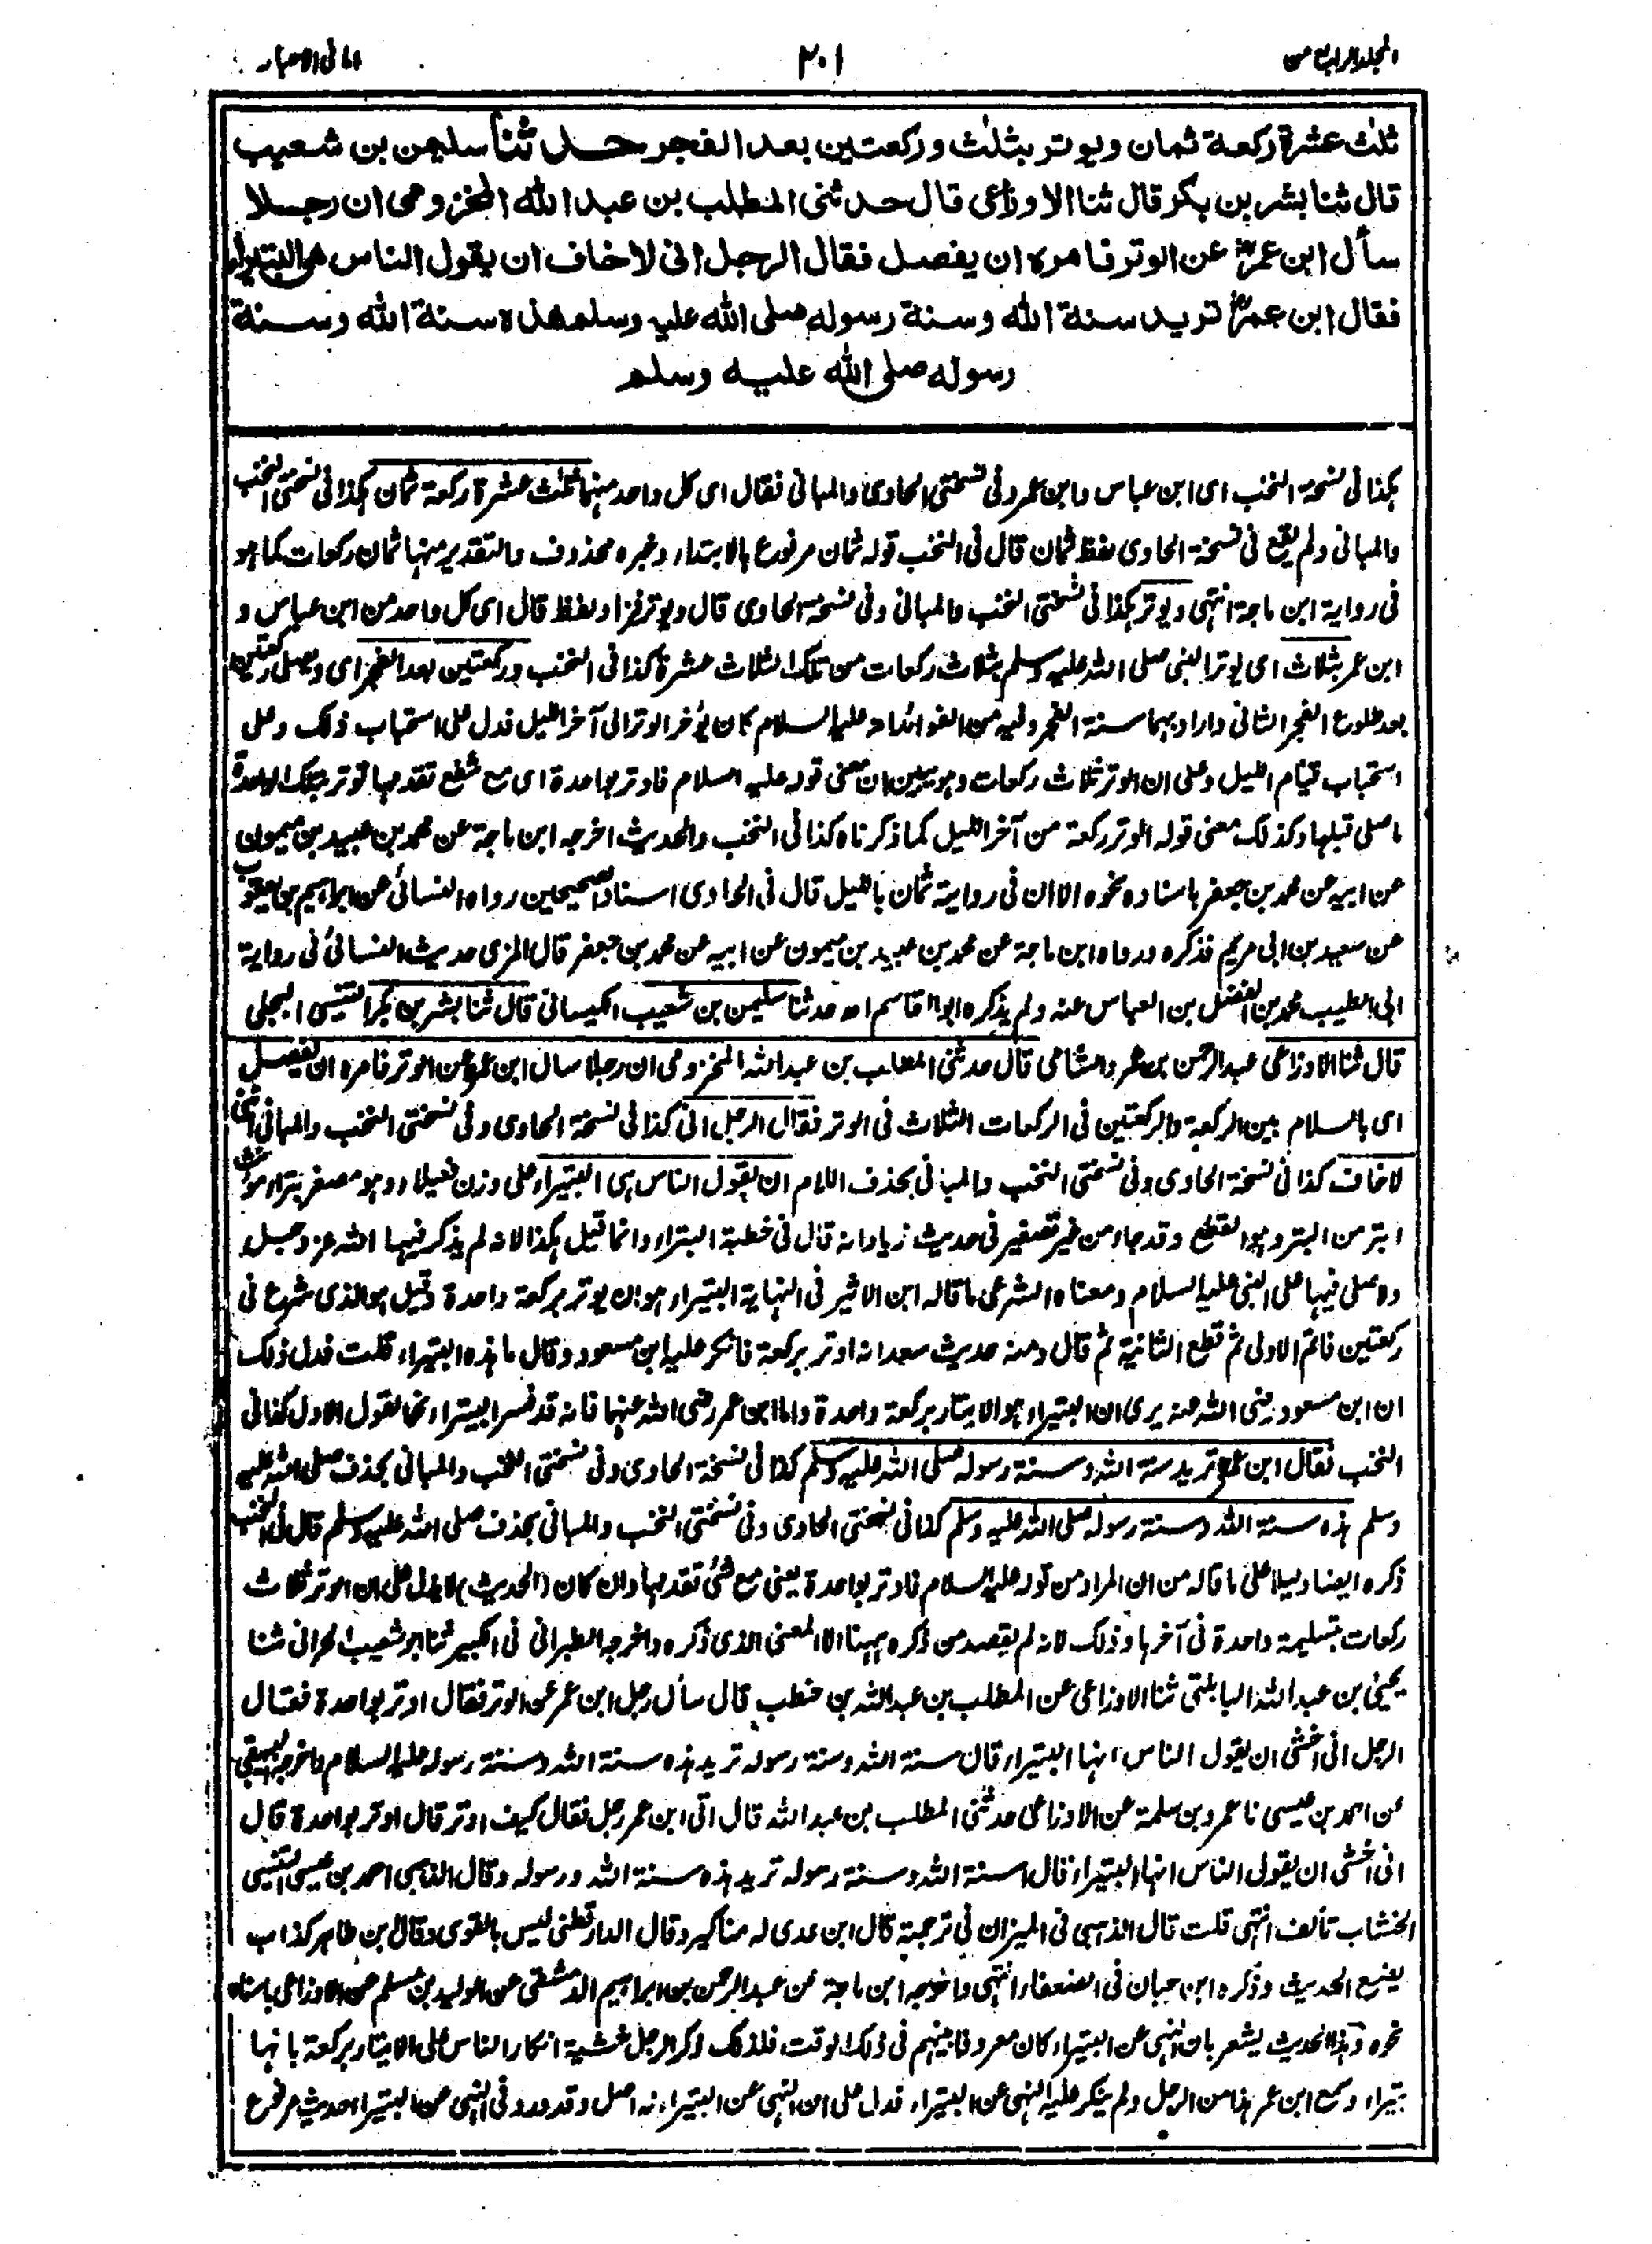 المجلد الرابع من
٢٠١
امانى الاحبار
ثلث عشرة ركعة ثمان ويوتر بثلث وركعتين بعد الفجر حدثنا سليمن بن شعيب
قال ثنا بشر بن بكر قال ثنا الاوزاعى قال حدثنى المطلب بن عبد الله المخزومى ان رجلا
سأل ابن عمرؓ عن الوتر فامره ان يفصل فقال الرجل انى لاخاف ان يقول الناس هى البتيراء
فقال ابن عمرؓ تريد سنة الله وسنة رسوله صلى الله عليه وسلم هذه سنة الله وسنة
رسوله صلى الله عليه وسلم
هكذا فى نسخة النخب اى ابن عباس وابن عمر وفى نسختى الحاوى والمبانى فقال اى كل واحد منهما ثلث عشرة ركعة ثمان هكذا فى نسختى النخب
والمبانى ولم يقع فى نسخة الحاوى لفظ ثمان قال فى النخب قوله ثمان مرفوع بالابتداء وخبره محذوف والتقدير منها ثمان ركعات كما هو
فى رواية ابن ماجة انتهى ويوتر هكذا فى نسختى النخب والمبانى وفى نسخة الحاوى قال ويوتر فزاد لفظ قال اى كل واحد من ابن عباس و
ابن عمر بثلاث اى يوتر النبى صلى الله عليه وسلم بثلاث ركعات من تلك الثلاث عشرة كذا فى النخب وركعتين بعد الفجر اى ويصلى ركعتين
بعد طلوع الفجر الثانى واراد بهما سنة الفجر وفيه من الفوائد انه عليه السلام كان يؤخر الوتر الى آخر الليل فدل على استحباب ذلك وعلى
استحباب قيام الليل وعلى ان الوتر ثلاث ركعات وهو يبين ان معنى قوله عليه السلام فاوتر بواحدة اى مع شفع تقدمها توتر بتلك الواحدة
ما صلى قبلها وكذلك معنى قوله الوتر ركعة من آخر الليل كما ذكرناه كذا فى النخب والحديث اخرجه ابن ماجة عن محمد بن عبيد بن ميمون
عن ابيه عن محمد بن جعفر باسناده نحوه الا ان فى رواية ثمان بالليل قال فى الحاوى اسناده صحيحين رواه النسائى عن ابراهيم بن يعقوب
عن سعيد بن ابى مريم فذكره ورواه ابن ماجة عن محمد بن عبيد بن ميمون عن ابيه عن محمد بن جعفر قال المزى حديث النسائى فى رواية
ابى الطيب محمد بن الفضل بن العباس عنه ولم يذكره ابو القاسم اه حدثنا سليمن بن شعيب الكيسانى قال ثنا بشر بن بكر التنيسى البجلى
قال ثنا الاوزاعى عبد الرحمن بن عمرو الشامى قال حدثنى المطلب بن عبد الله المخزومى ان رجلا سال ابن عمرؓ عن الوتر فامره ان يفصل
اى بالسلام بين الركعة والركعتين فى الركعات الثلاث فى الوتر فقال الرجل انى كذا فى نسخة الحاوى وفى نسختى النخب والمبانى اننى
لاخاف كذا فى نسخة الحاوى وفى نسختى النخب والمبانى بحذف اللام ان يقول الناس هى البتيراء على وزن فعيلاء وهو مصغر بتراء مؤنث
ابتر من البتر وهو القطع وقد جاء من غير تصغير فى حديث زياد انه قال فى خطبة البتراء وانما قيل هكذا لانه لم يذكر فيها الله عز وجل
ولا صلى فيها على النبى عليه السلام ومعناه الشرعى ما قاله ابن الاثير فى النهاية البتيراء هو ان يوتر بركعة واحدة وقيل هو الذى شرع فى
ركعتين فاتم الاولى ثم قطع الثانية ثم قال ومنه حديث سعد انه اوتر بركعة فانكر عليه ابن مسعود وقال ما هذه البتيراء قلت فدل ذلك
ان ابن مسعود رضى الله عنه يرى ان البتيراء هو الايتار بركعة واحدة واما ابن عمر رضى الله عنهما فانه قد فسر البتيراء نحو القول الاول كذا فى
النخب فقال ابن عمرؓ تريد سنة الله وسنة رسوله صلى الله عليه وسلم كذا فى نسخة الحاوى وفى نسختى النخب والمبانى بحذف صلى الله عليه
وسلم هذه سنة الله وسنة رسوله صلى الله عليه وسلم كذا فى نسختى الحاوى وفى نسختى النخب والمبانى بحذف صلى الله عليه وسلم قال فى النخب
ذكره ايضا دليلا على ما قاله من ان المراد من قوله عليه السلام فاوتر بواحدة يعنى مع شئ تقدمها وان كان (الحديث) لا يدل على ان الوتر ثلاث
ركعات بتسليمة واحدة فى آخرها وذلك لانه لم يقصد من ذكره ههنا الا المعنى الذى ذكره واخرجه الطبرانى فى الكبير ثنا ابو شعيب الحرانى ثنا
يحيىٰ بن عبد الله البابلتى ثنا الاوزاعى عن المطلب بن عبد الله بن حنطب قال سأل رجل ابن عمر عن الوتر فقال اوتر بواحدة فقال
الرجل انى اخشى ان يقول الناس انها البتيراء قال سنة الله وسنة رسوله تريد هذه سنة الله وسنة رسوله عليه السلام واخرجه البيهقى
عن احمد بن عيسى نا عمرو بن سلمة عن الاوزاعى حدثنى المطلب بن عبد الله قال اتى ابن عمر رجل فقال كيف اوتر قال اوتر بواحدة قال
انى اخشى ان يقول الناس انها البتيراء قال اسنة الله وسنة رسوله تريد هذه سنة الله ورسوله وقال الذهبى احمد بن عيسى التنيسى
الخشاب تألف انتهى قلت قال الذهبى فى الميزان فى ترجمته قال ابن عدى له مناكير وقال الدارقطنى ليس بالقوى وقال بن طاهر كذاب
يضع الحديث وذكره ابن حبان فى الضعفاء انتهى واخرجه ابن ماجة عن عبد الرحمن بن ابراهيم الدمشقى عن الوليد بن مسلم عن الاوزاعى باسناده
نحوه وهذا الحديث يشعر بان النهى عن البتيراء كان معروفا بينهم فى ذلك الوقت فلذلك ذكر الرجل خشية انكار الناس على الايتار بركعة بانها
بتيراء وسمع ابن عمر هذا من الرجل ولم ينكر عليه النهى عن البتيراء فدل على ان النهى عن البتيراء له اصل وقد ورد فى النهى عن البتيراء حديث مرفوع